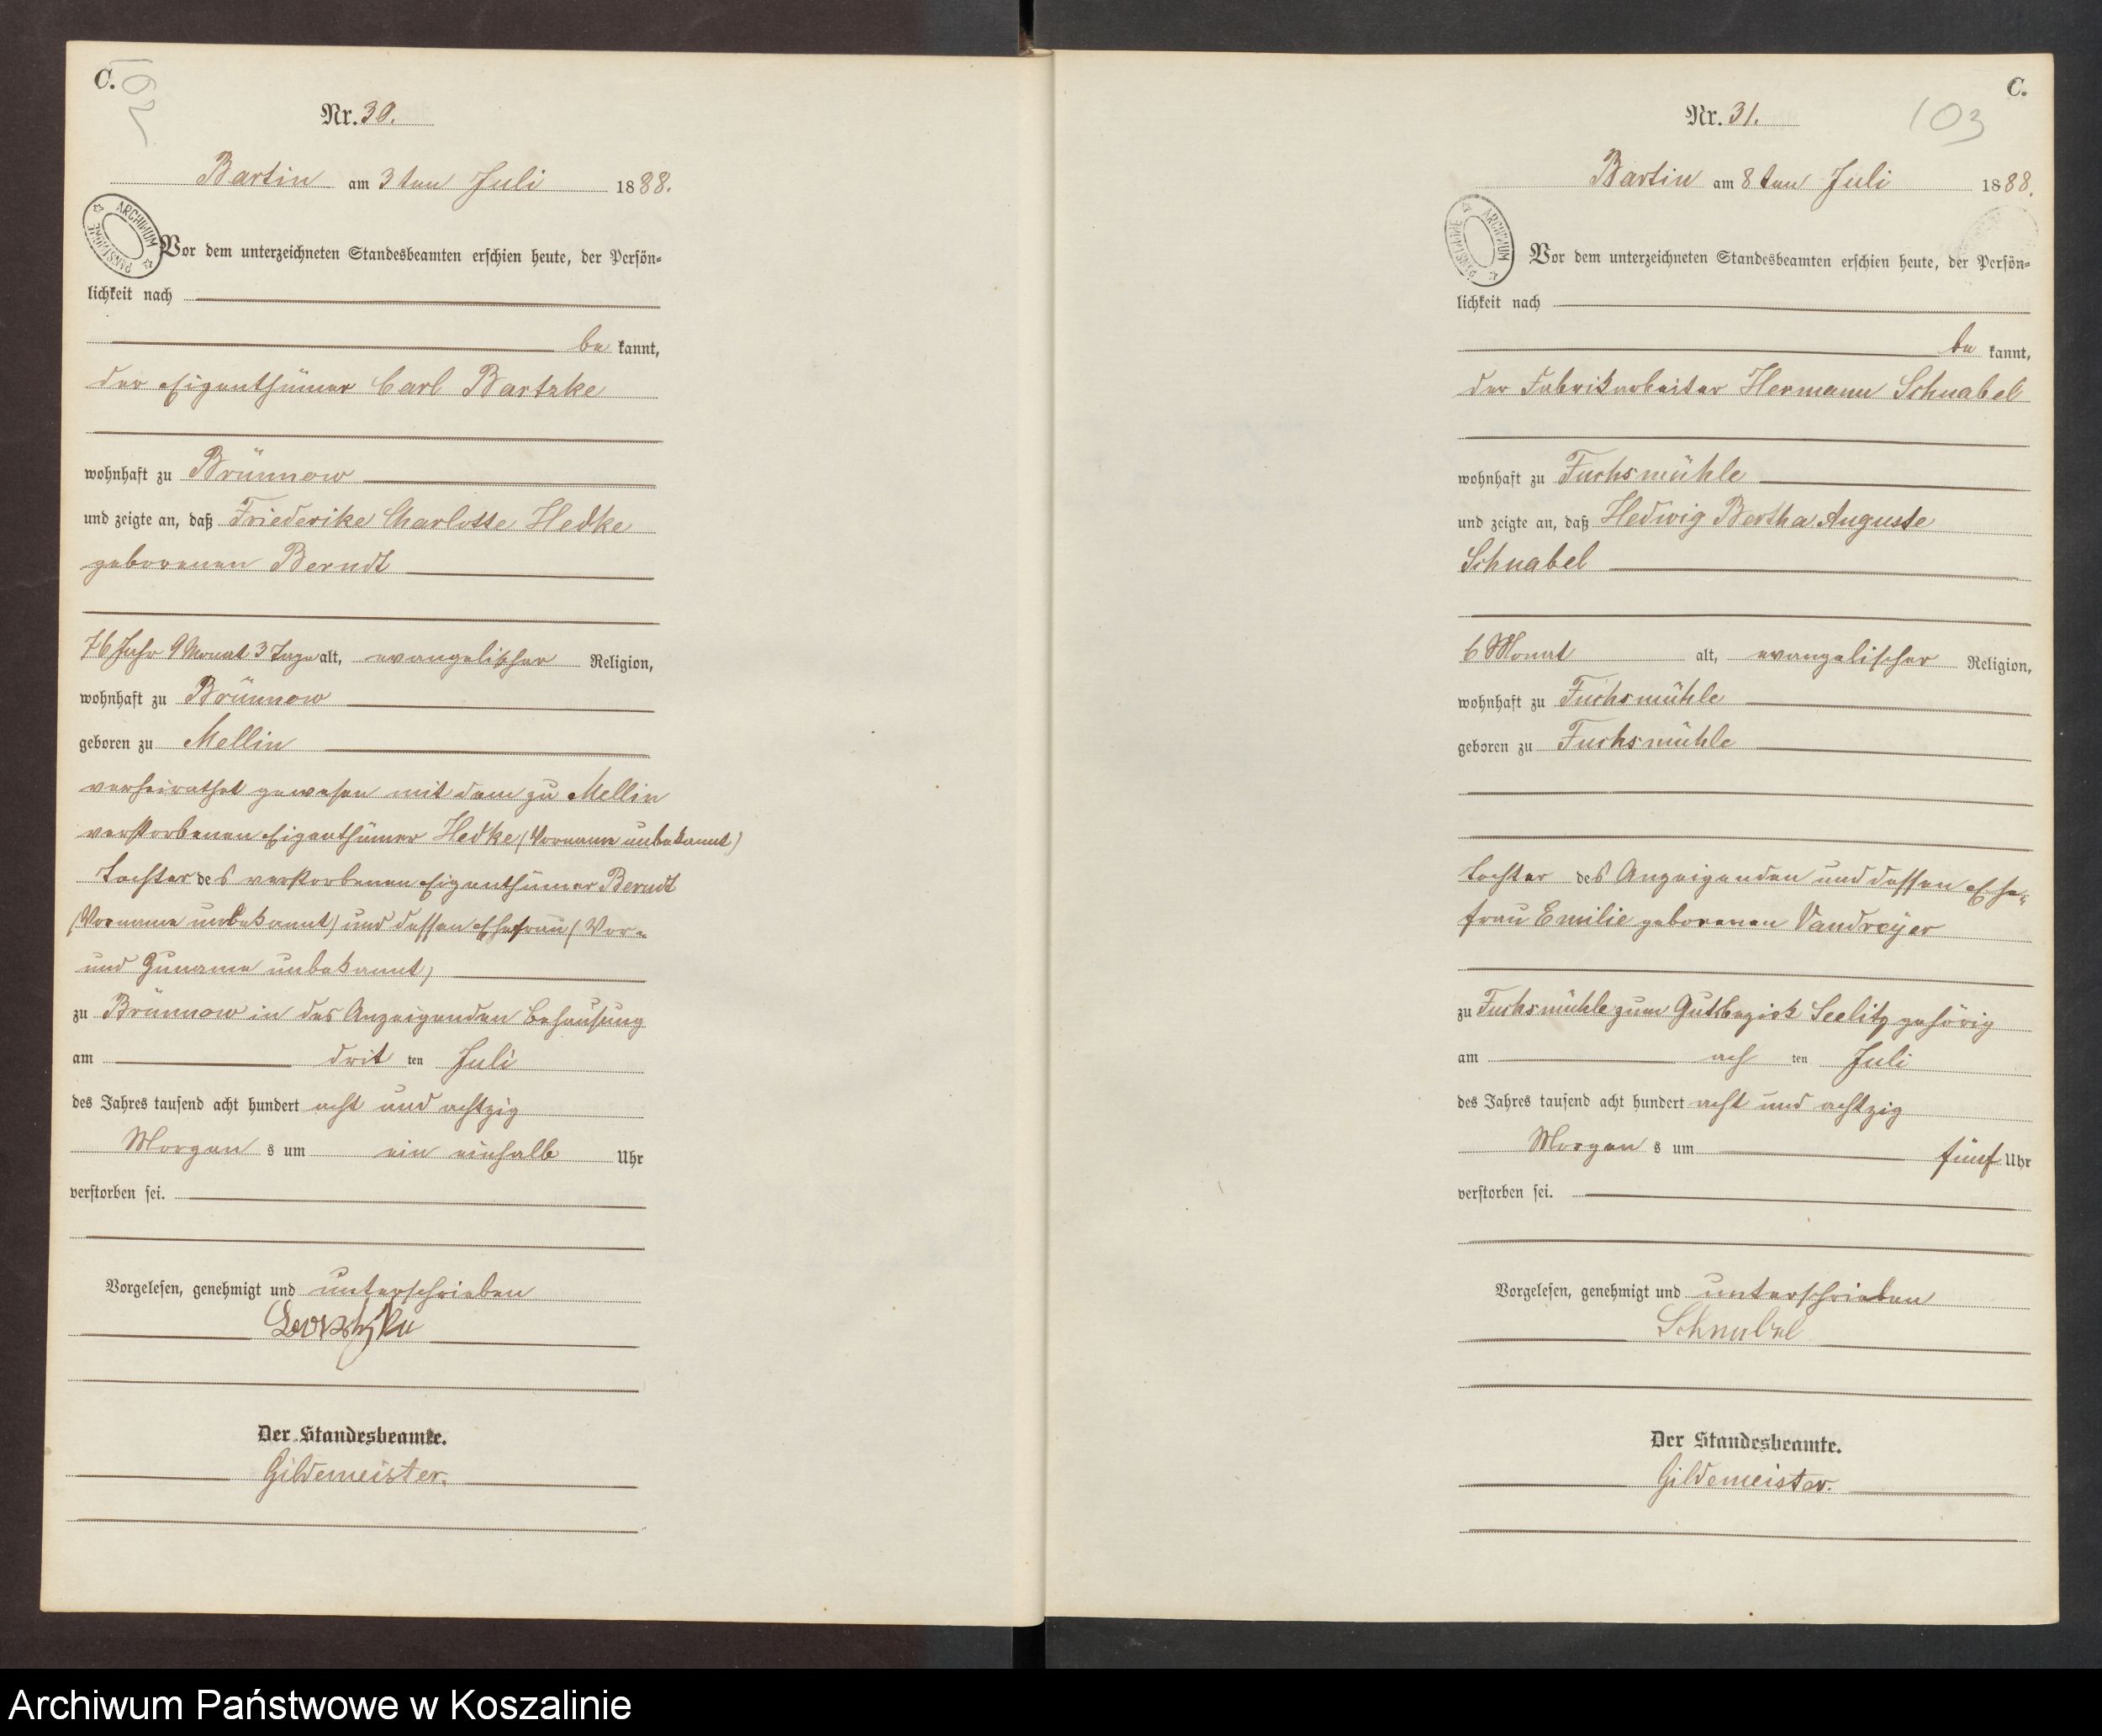 C.
Nr. 30.
Bartin am 3ten Juli 1888.
ARCHIWUM PAŃSTWOWE
Vor dem unterzeichneten Standesbeamten erschien heute, der Persön=
lichkeit nach
be kannt,
der Eigenthümer Carl Bartzke
wohnhaft zu Brünnow
und zeigte an, daß Friederike Charlotte Hedke
geborenen Berndt
76 Jahr 9 Monat 3 Tage alt, evangelischer Religion,
wohnhaft zu Brünnow
geboren zu Mellin
verheirathet gewesen mit dem zu Mellin
verstorbenen Eigenthümer Hedke (Vorname unbekannt)
Tochter des verstorbenen Eigenthümer Berndt
(Vorname unbekannt) und dessen Ehefrau (Vor=
und Zuname unbekannt)
zu Brünnow in des Anzeigenden Behausung
am drit ten Juli
des Jahres tausend acht hundert acht und achtzig
Morgen s um ein einhalb Uhr
verstorben sei.
Vorgelesen, genehmigt und unterschrieben
Der Standesbeamte.
Gildemeister.
C.
103
Nr. 31.
Bartin am 8ten Juli 1888.
ARCHIWUM PAŃSTWOWE
Vor dem unterzeichneten Standesbeamten erschien heute, der Persön=
lichkeit nach
be kannt,
der Fabrikarbeiter Hermann Schnabel
wohnhaft zu Fuchsmühle
und zeigte an, daß Hedwig Bertha Auguste
Schnabel
6 Monat alt, evangelischer Religion,
wohnhaft zu Fuchsmühle
geboren zu Fuchsmühle
Tochter des Anzeigenden und dessen Ehe=
frau Emilie geborenen Vandreÿer
zu Fuchsmühle zum Gutsbezirk Seelitz gehörig
am ach ten Juli
des Jahres tausend acht hundert acht und achtzig
Morgen s um fünf Uhr
verstorben sei.
Vorgelesen, genehmigt und unterschrieben
Schnabel
Der Standesbeamte.
Gildemeister.
Archiwum Państwowe w Koszalinie